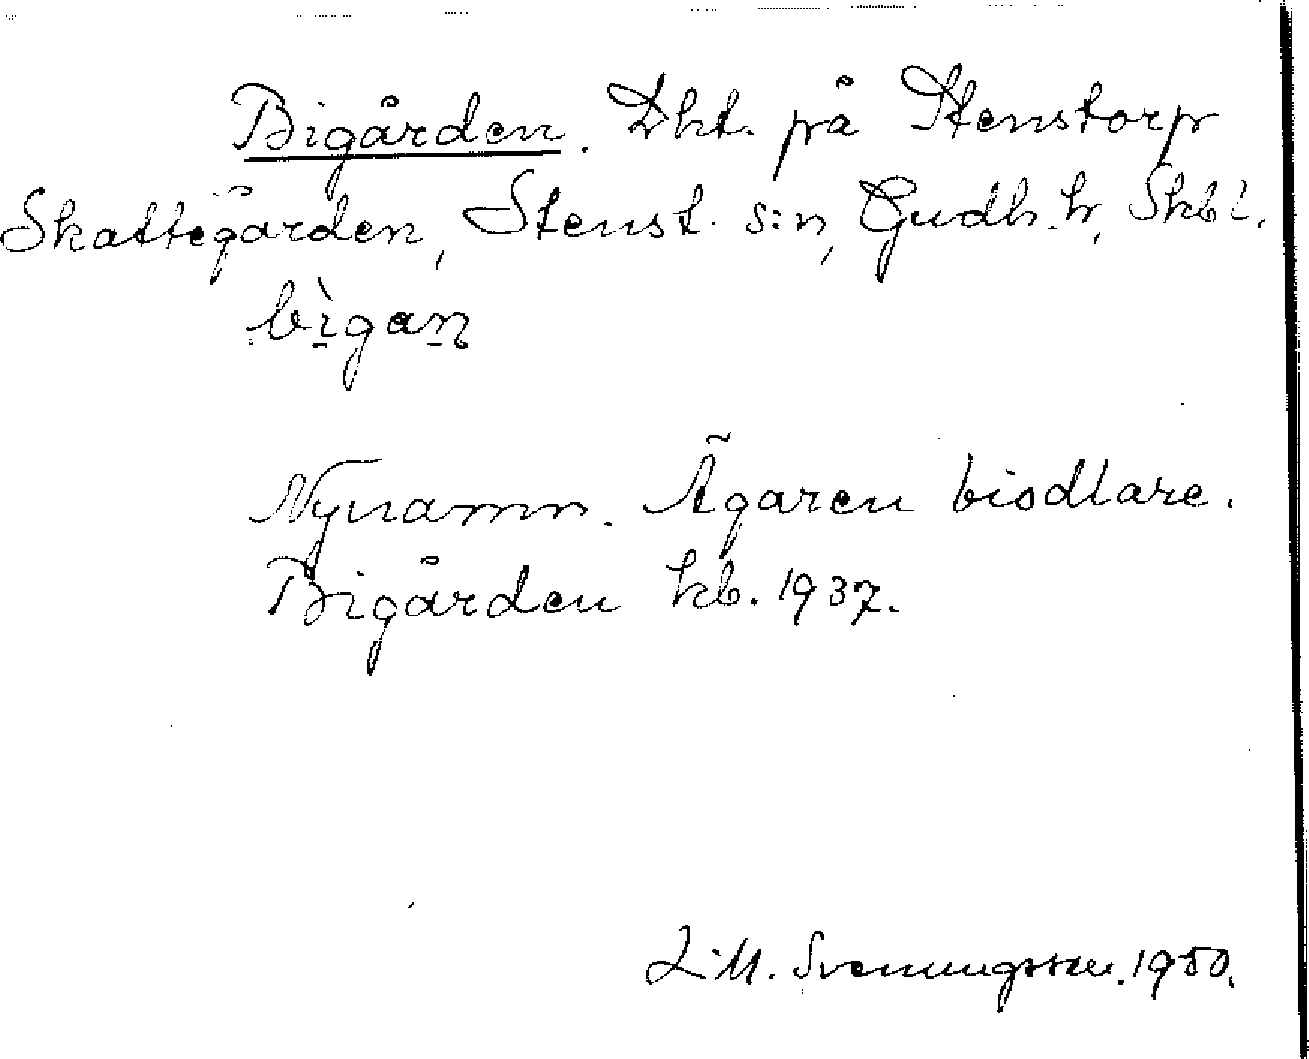 Bigården. Lht. på Stenstorp
Skattegården, Stenst. s:n, Gudh. h, Skb l.
bìgan
Nynamn. Ägaren biodlare.
Bigården kb. 1937.
L.M. Svenungsson. 1950.